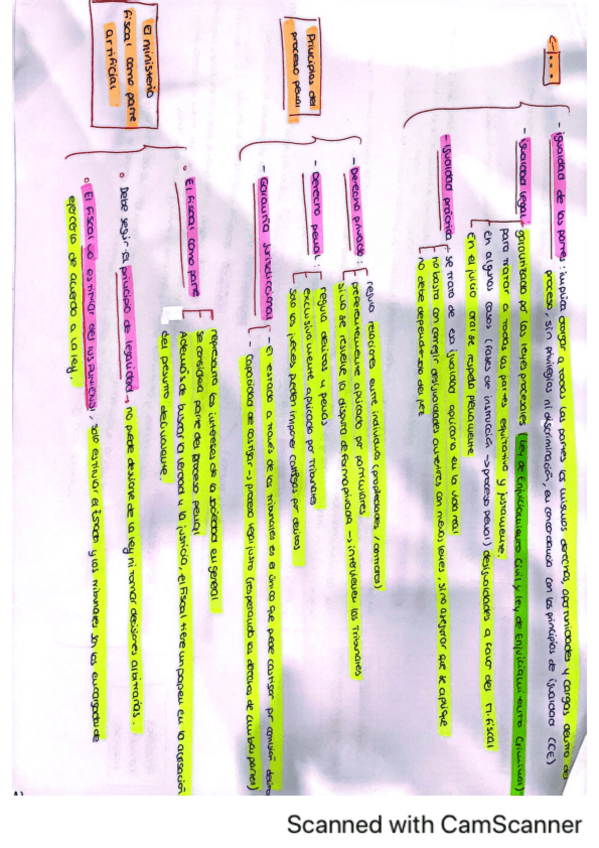 <-...
- igualdad de las partes: implica otorgar a todas las partes los mismos derechos, oportunidades y cargas dentro del
proceso, sin privilegios ni discriminación, en concordancia con los principios de igualdad (CE)
- igualdad legal: garantizada por las leyes procesales (Ley de Enjuiciamiento Civil y Ley de Enjuiciamiento Criminal)
para tratar a todas las partes equitativa y justamente.
en algunos casos (fases de instrucción -> proceso penal) desigualdades a favor del M. fiscal
en el juicio oral se respeta plenamente
- igualdad práctica: se trata de esa igualdad aplicada en la vida real
no basta con corregir desigualdades anteriores con nuevas leyes, sino asegurar que se aplique
no debe depender de
Principios del
proceso penal
- Derecho privado: regula relaciones entre individuos (propiedades / contratos)
preferentemente aplicado por particulares
si no se resuelve la disputa de forma privada -> intervienen los Tribunales
- Derecho penal: regula delitos y penas
exclusivamente aplicado por Tribunales
solo los jueces pueden imponer castigos por delitos
- Garantía jurisdiccional - el estado a través de los tribunales es el único que puede castigar por comisión delito
- capacidad de castigar -> proceso legal justo (respetando los derechos de ambas partes)
El ministerio
fiscal como parte
artificial
° El fiscal como parte representa los intereses de la sociedad en general
se considera parte del proceso penal
Además de buscar la verdad y la justicia, el fiscal tiene un papel en la acusación
del presunto delincuente.
° Debe seguir el principio de legalidad -> no puede desviarse de la ley ni tomar decisiones arbitrarias.
° El fiscal no es titular del ius puniendi, solo es titular el estado y los tribunales son los encargados de
ejercerlo de acuerdo a la ley.
Scanned with CamScanner